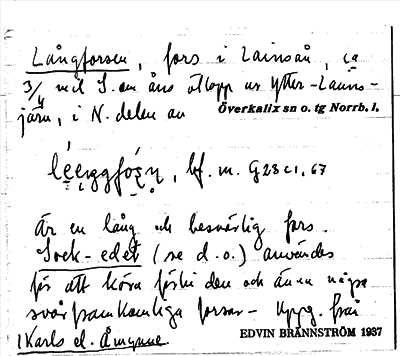 Långforsen, fors i Lainsån, ca
3/4 mil S. om åns utlopp ur Ytter-Lains-
järn, i N. delen av Överkalix sn o. tg Norrb. l.
bf. m. G28c1.67
Är en lång och besvärlig fors.
Sock-edet (se d.o.) användes
för att köra förbi den och ännu några
svårframkomliga forsar - Uppg. från
Karls el. Åmynne. EDVIN BRÄNNSTRÖM 1937